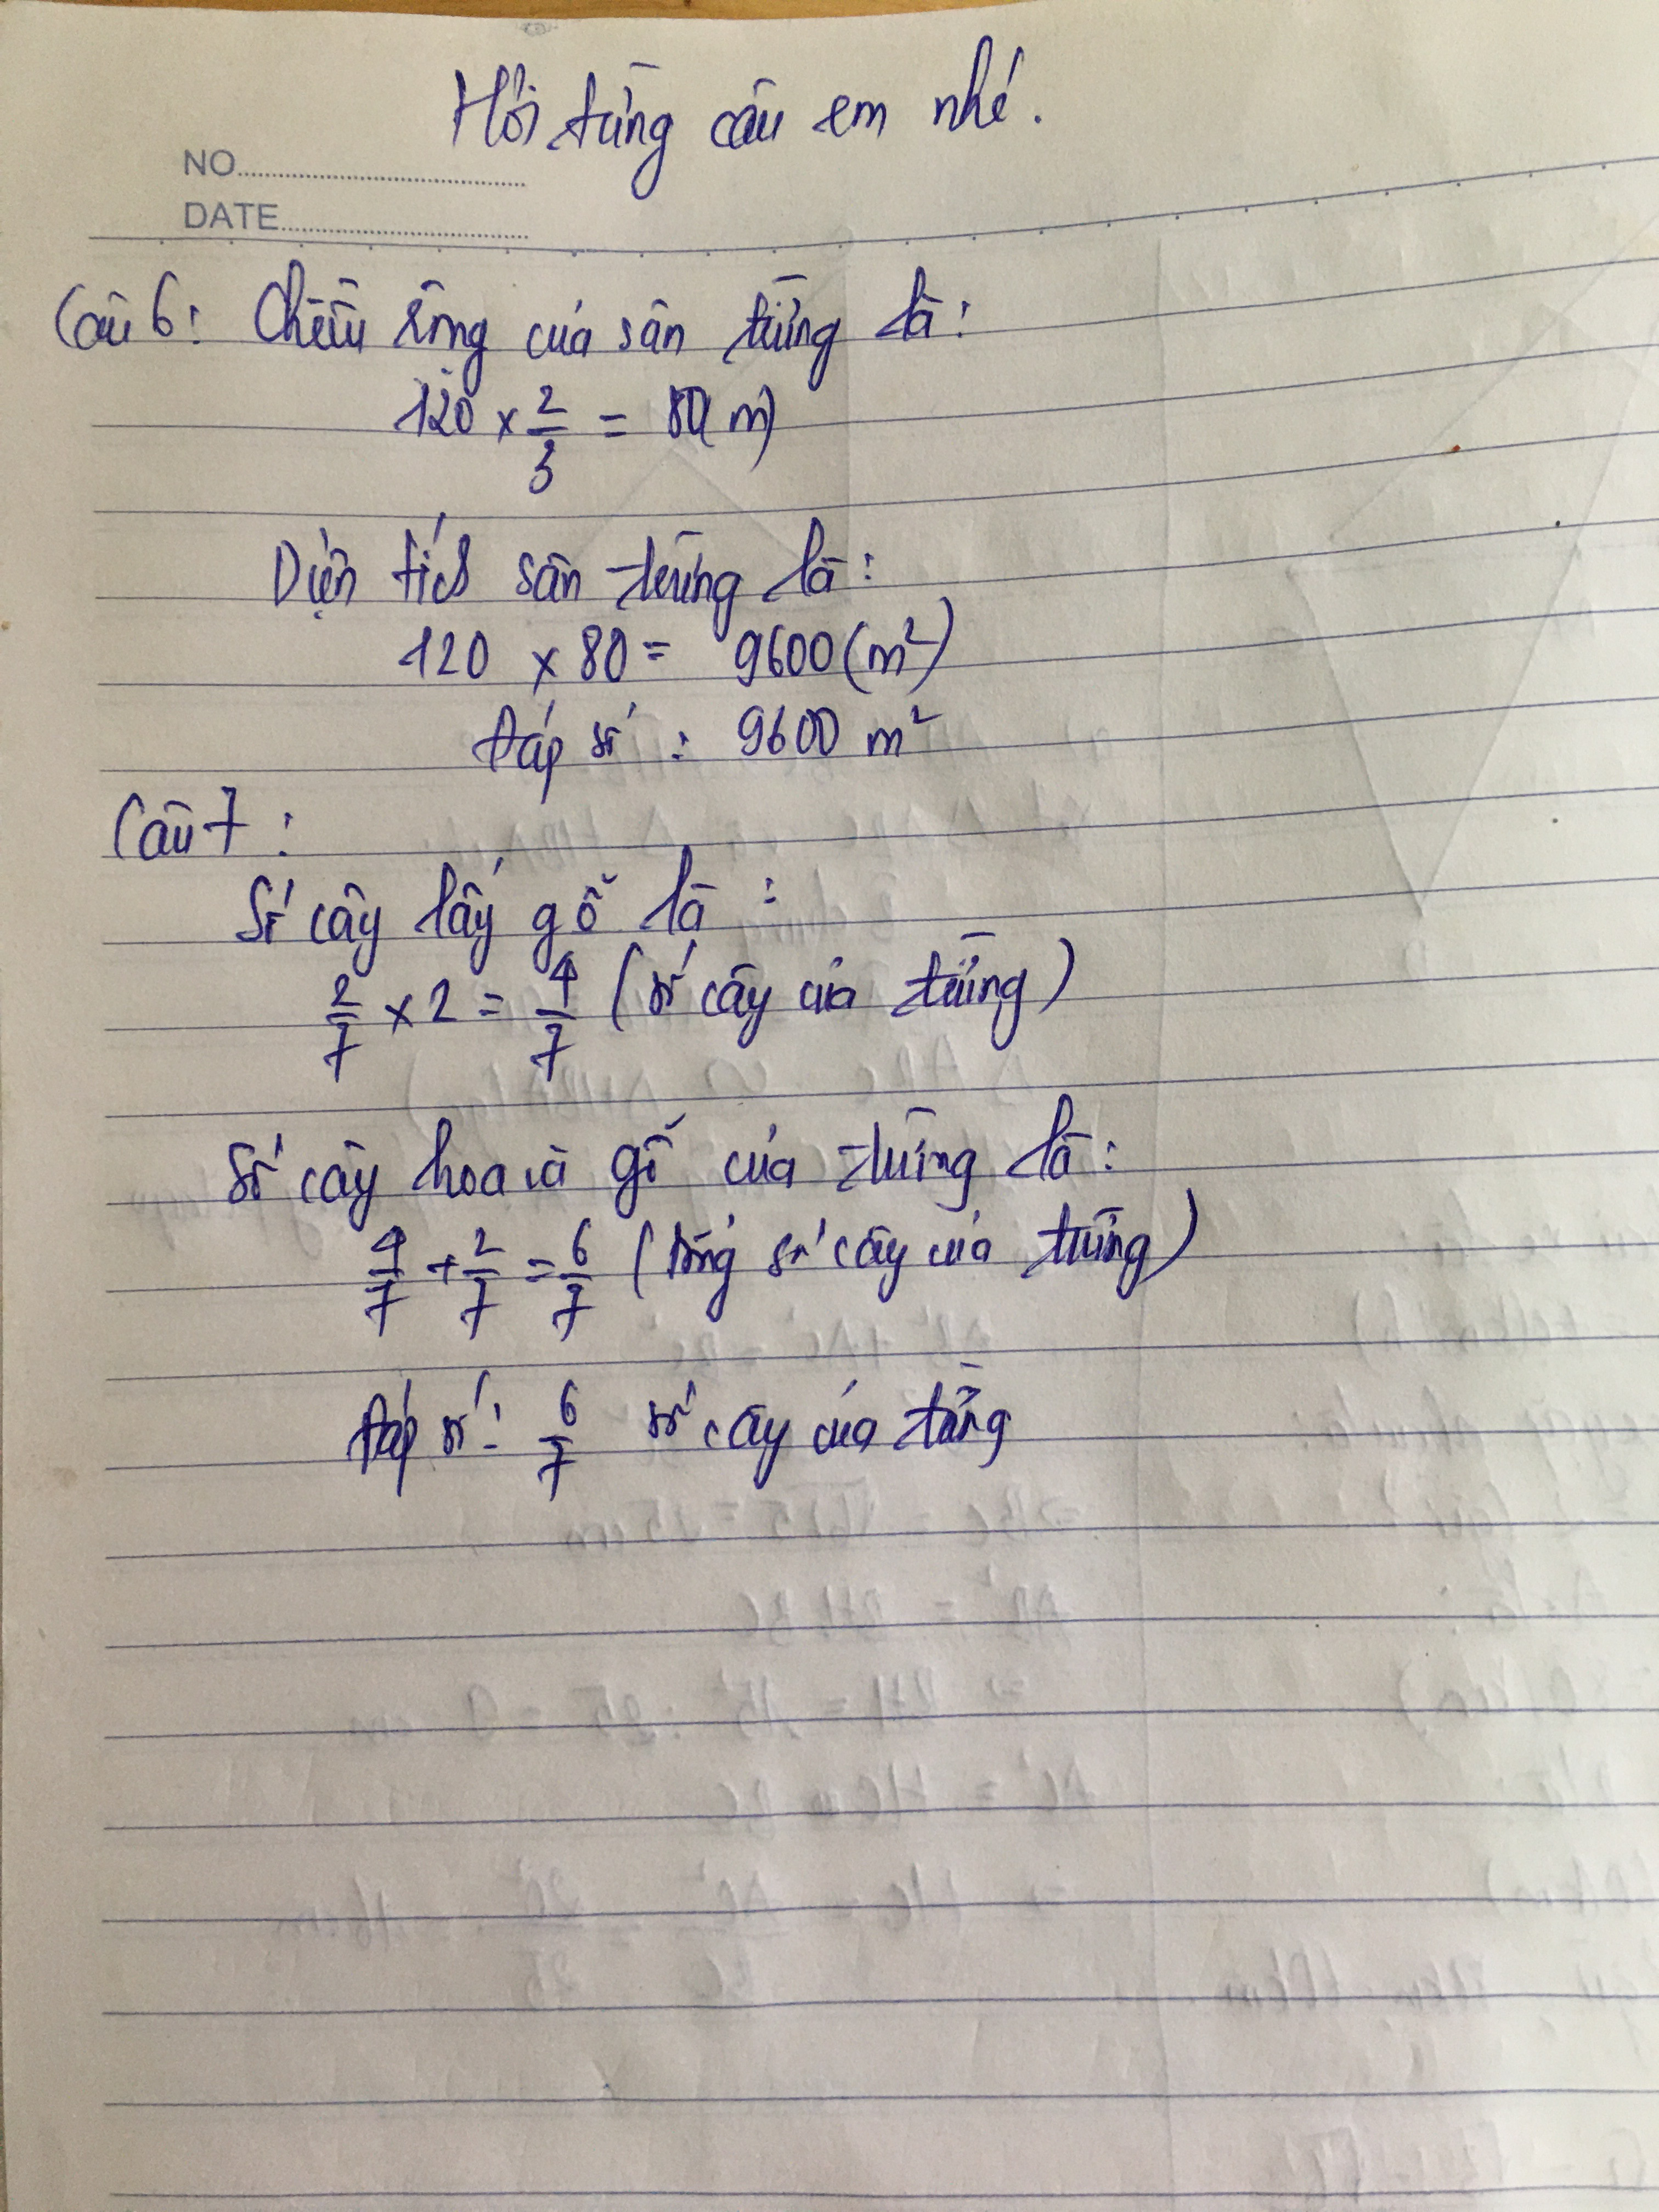 Hỏi từng câu em nhé.
NO
DATE
Câu 6: Chiều rộng của sân trường là:
120 × 2/3 = 80(m)
Diện tích sân trường là:
120 × 80 = 9600 (m²)
Đáp số : 9600 m²
Câu 7 :
Số cây lấy gỗ là :
2/7 × 2 = 4/7 (số cây của trường)
Số cây hoa và gỗ của trường là:
4/7 + 2/7 = 6/7 (tổng số cây của trường)
Đáp số: 6/7 số cây của trường